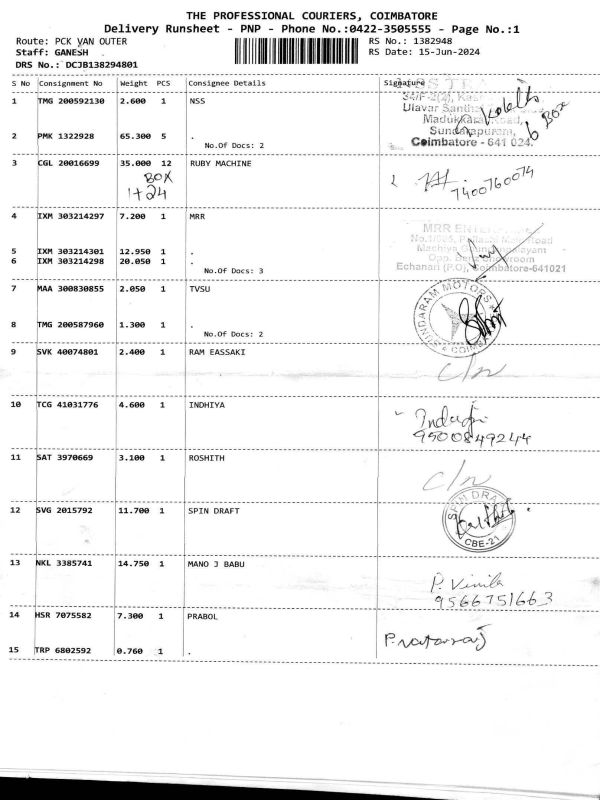 THE PROFESSIONAL COURIERS, COIMBATORE
Delivery Runsheet - PNP - Phone No.:0422-3505555 - Page No.:1
Route: PCK VAN OUTER RS No.: 1382948
Staff: GANESH RS Date: 15-Jun-2024
DRS No.: DCJB138294801
S No Consignment No Weight PCS Consignee Details Signature
1 TMG 200592130 2.600 1 NSS
Ulavar
Madukkarai Road,
2 PMK 1322928 65.300 5 . Sundarapuram,
No.Of Docs: 2 Coimbatore - 641 024.
6 BOX
3 CGL 20016699 35.000 12 RUBY MACHINE
BOX
1+24
7400760074
4 IXM 303214297 7.200 1 MRR
MRR
Road
5 IXM 303214301 12.950 1 .
6 IXM 303214298 20.050 1 .
No.Of Docs: 3 Echanari (P.O), Coimbatore-641021
7 MAA 300830855 2.050 1 TVSU
SUNDARAM MOTORS
COIMBA
8 TMG 200587960 1.300 1 .
No.Of Docs: 2
9 SVK 40074801 2.400 1 RAM EASSAKI
c/n
10 TCG 41031776 4.600 1 INDHIYA
9500849244
11 SAT 3970669 3.100 1 ROSHITH
c/n
12 SVG 2015792 11.700 1 SPIN DRAFT
SPIN DRAFT
CBE-21
13 NKL 3385741 14.750 1 MANO J BABU
P. Vimila
9566751663
14 HSR 7075582 7.300 1 PRABOL
P.Nataraj
15 TRP 6802592 0.760 1 .